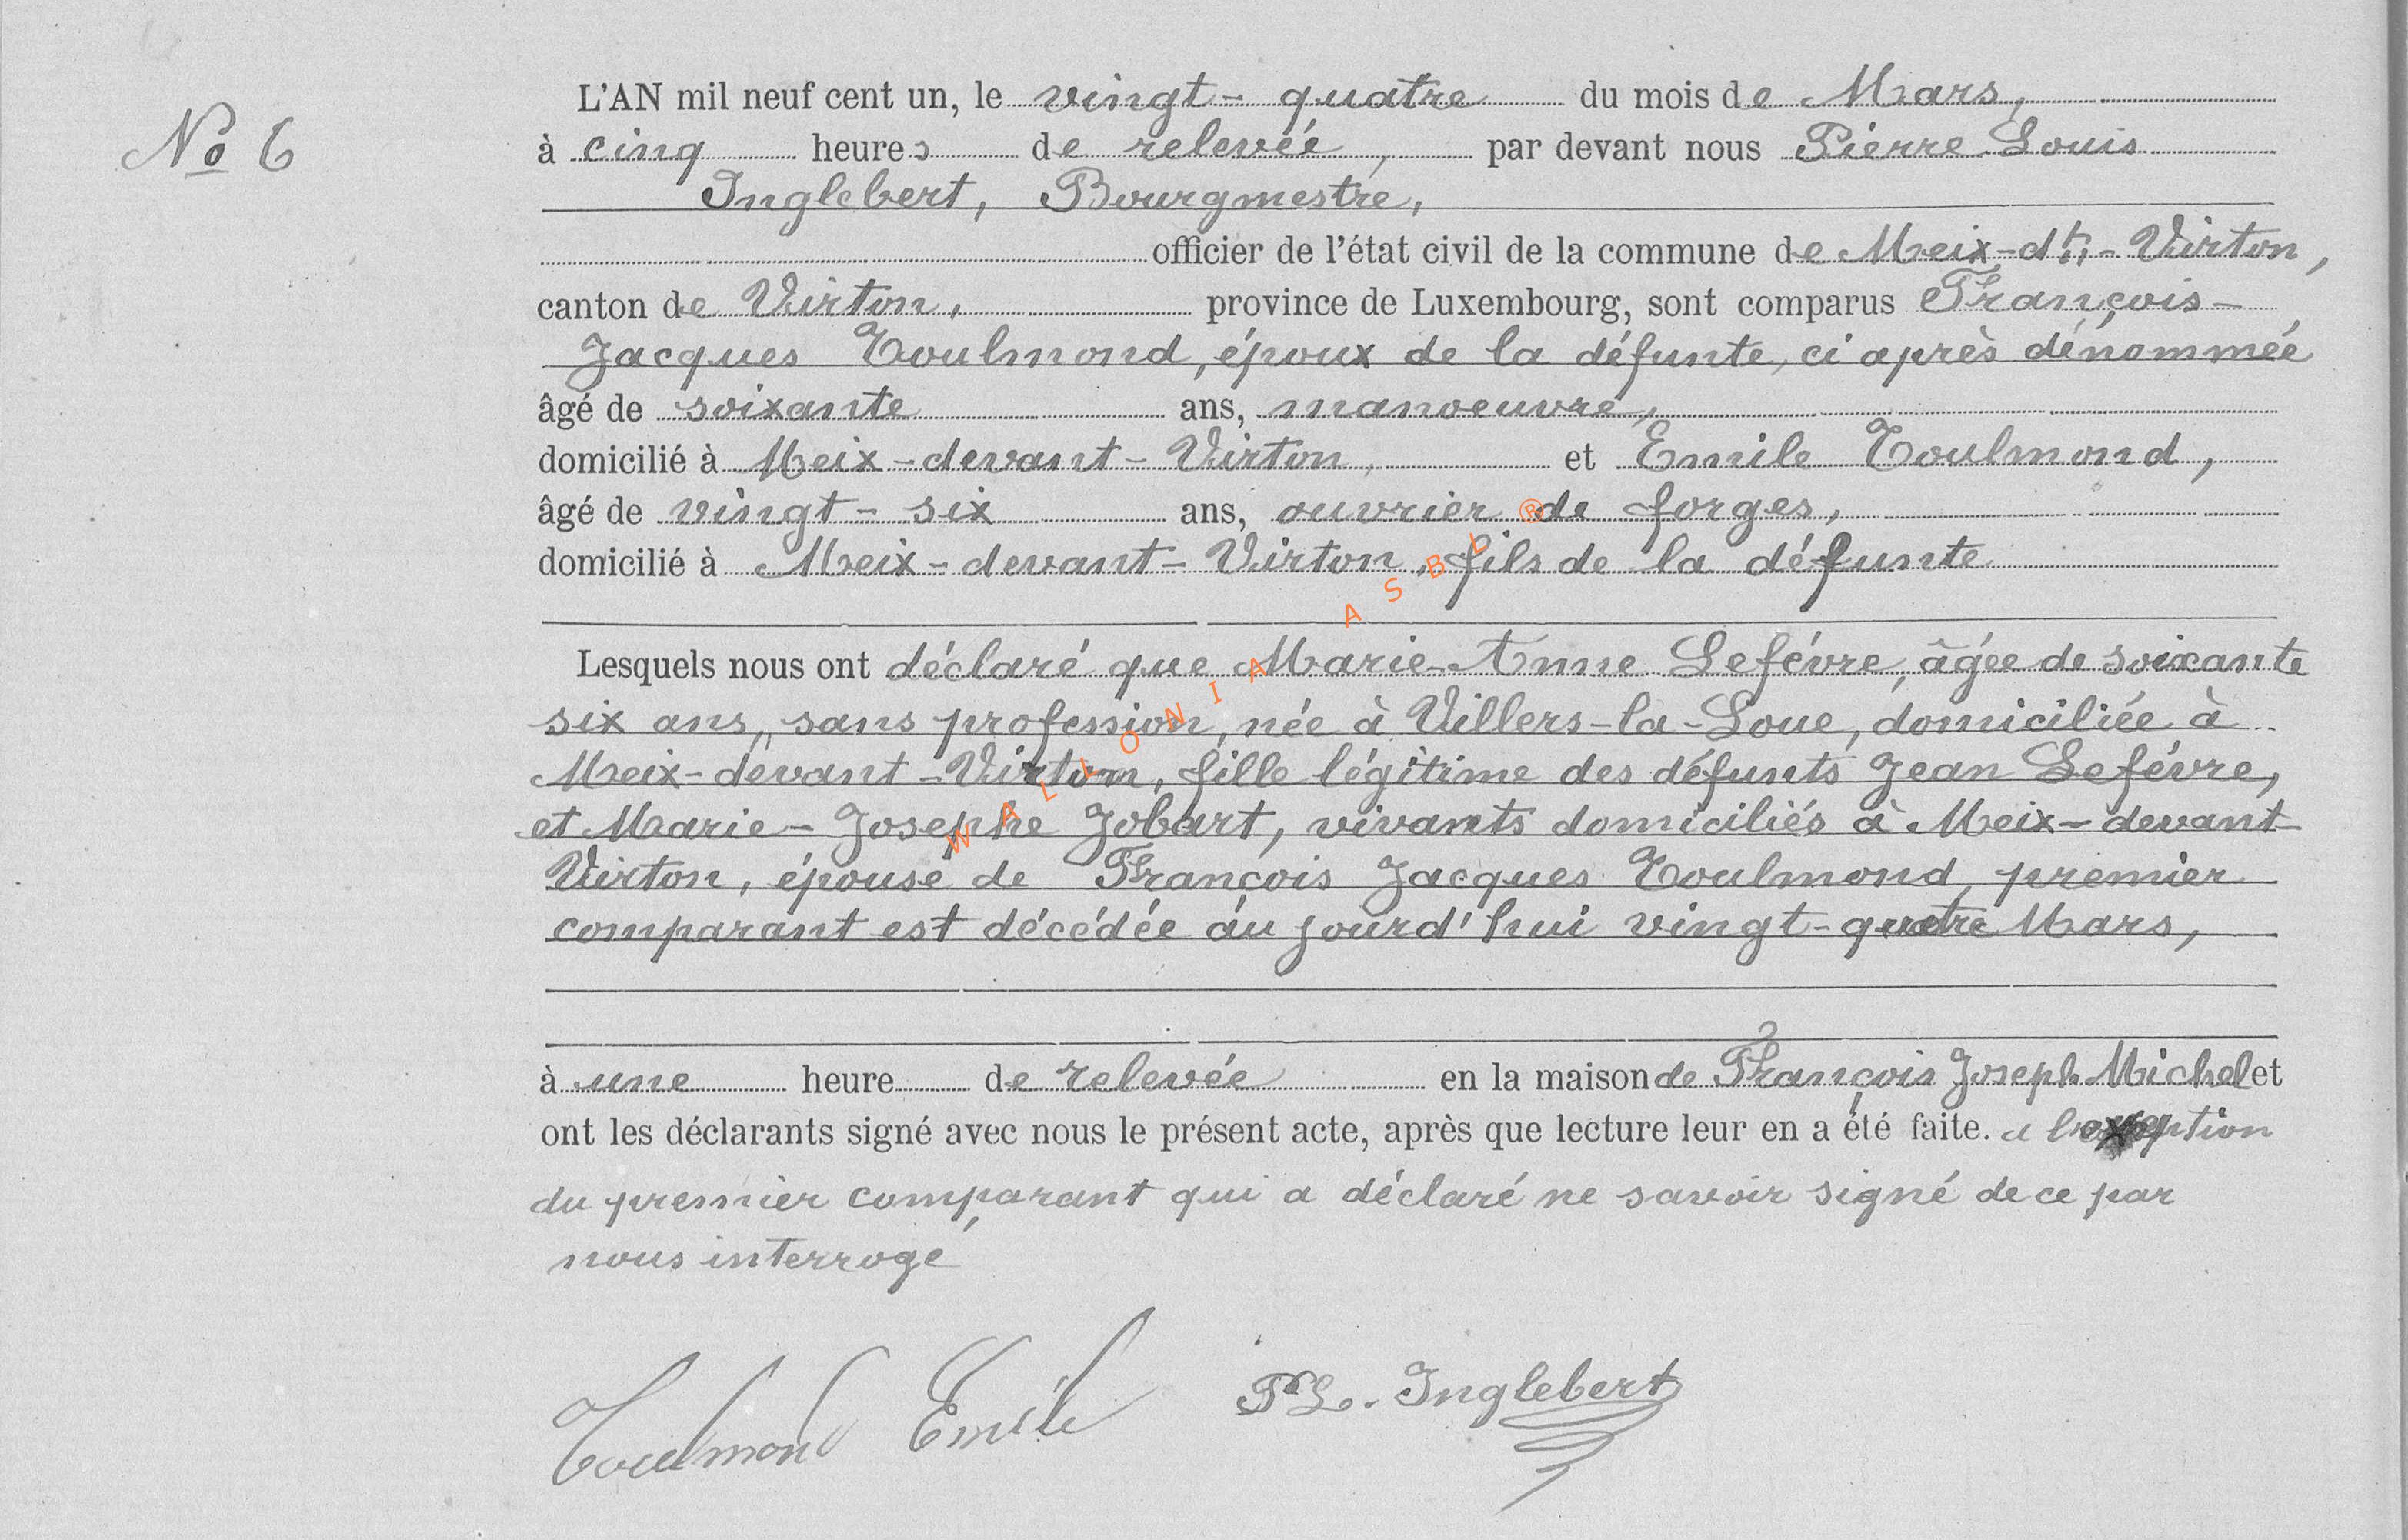 No 6
L'AN mil neuf cent un, le vingt-quatre du mois de Mars,
à cinq heures de relevée, par devant nous Pierre Louis
Inglebert, Bourgmestre,
officier de l'état civil de la commune de Meix-dt-Virton,
canton de Virton, province de Luxembourg, sont comparus François-
Jacques Toulmond, époux de la défunte, ci après dénommée
âgé de soixante ans, manoeuvre,
domicilié à Meix-devant-Virton, et Emile Toulmond,
âgé de vingt-six ans, ouvrier de forges,
domicilié à Meix-devant-Virton, fils de la défunte
Lesquels nous ont déclaré que Marie-Anne Lefévre, âgée de soixante
six ans, sans profession, née à Villers-la-Loue, domiciliée à
Meix-devant-Virton, fille légitime des défunts Jean Lefévre,
et Marie-Josephe Jobart, vivants domiciliés à Meix-devant-
Virton, épouse de François Jacques Toulmond, premier
comparant est décédée aujourd'hui vingt-quatre Mars,
à une heure de relevée en la maison de François Joseph Michel et
ont les déclarants signé avec nous le présent acte, après que lecture leur en a été faite. a l'exception
du premier comparant qui a déclaré ne savoir signé de ce par
nous interrogé
Toulmond Emile PL. Inglebert
WALLONIA ASBL ®